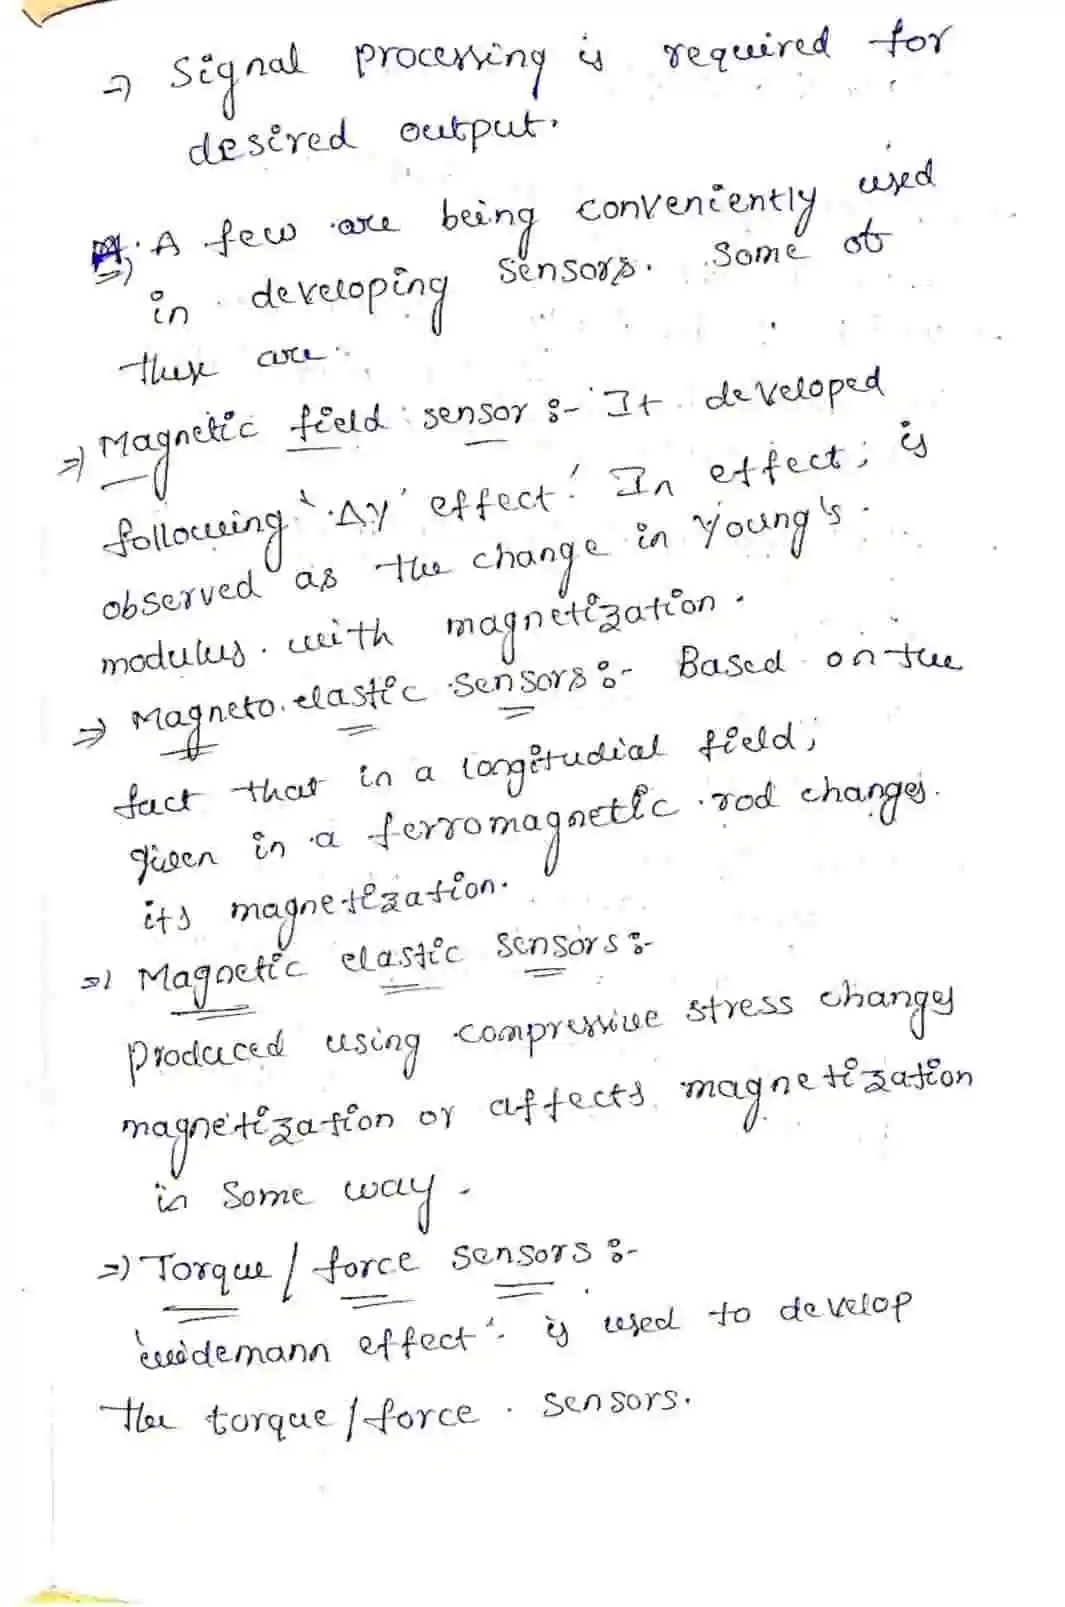 ⇒ Signal processing is required for
desired output.
⇒ A few are being conveniently used
in developing sensors. Some of
these are.
⇒ Magnetic field sensor :- It developed
following 'ΔY' effect'. In effect, is
observed as the change in Young's
modulus with magnetization.
⇒ Magneto elastic sensors :- Based on the
fact that in a longitudial field,
given in a ferromagnetic rod changes
its magnetization.
⇒ Magnetic elastic sensors :-
Produced using compressive stress changes
magnetization or affects magnetization
in some way.
⇒ Torque / force sensors :-
'widemann effect' is used to develop
the torque / force sensors.